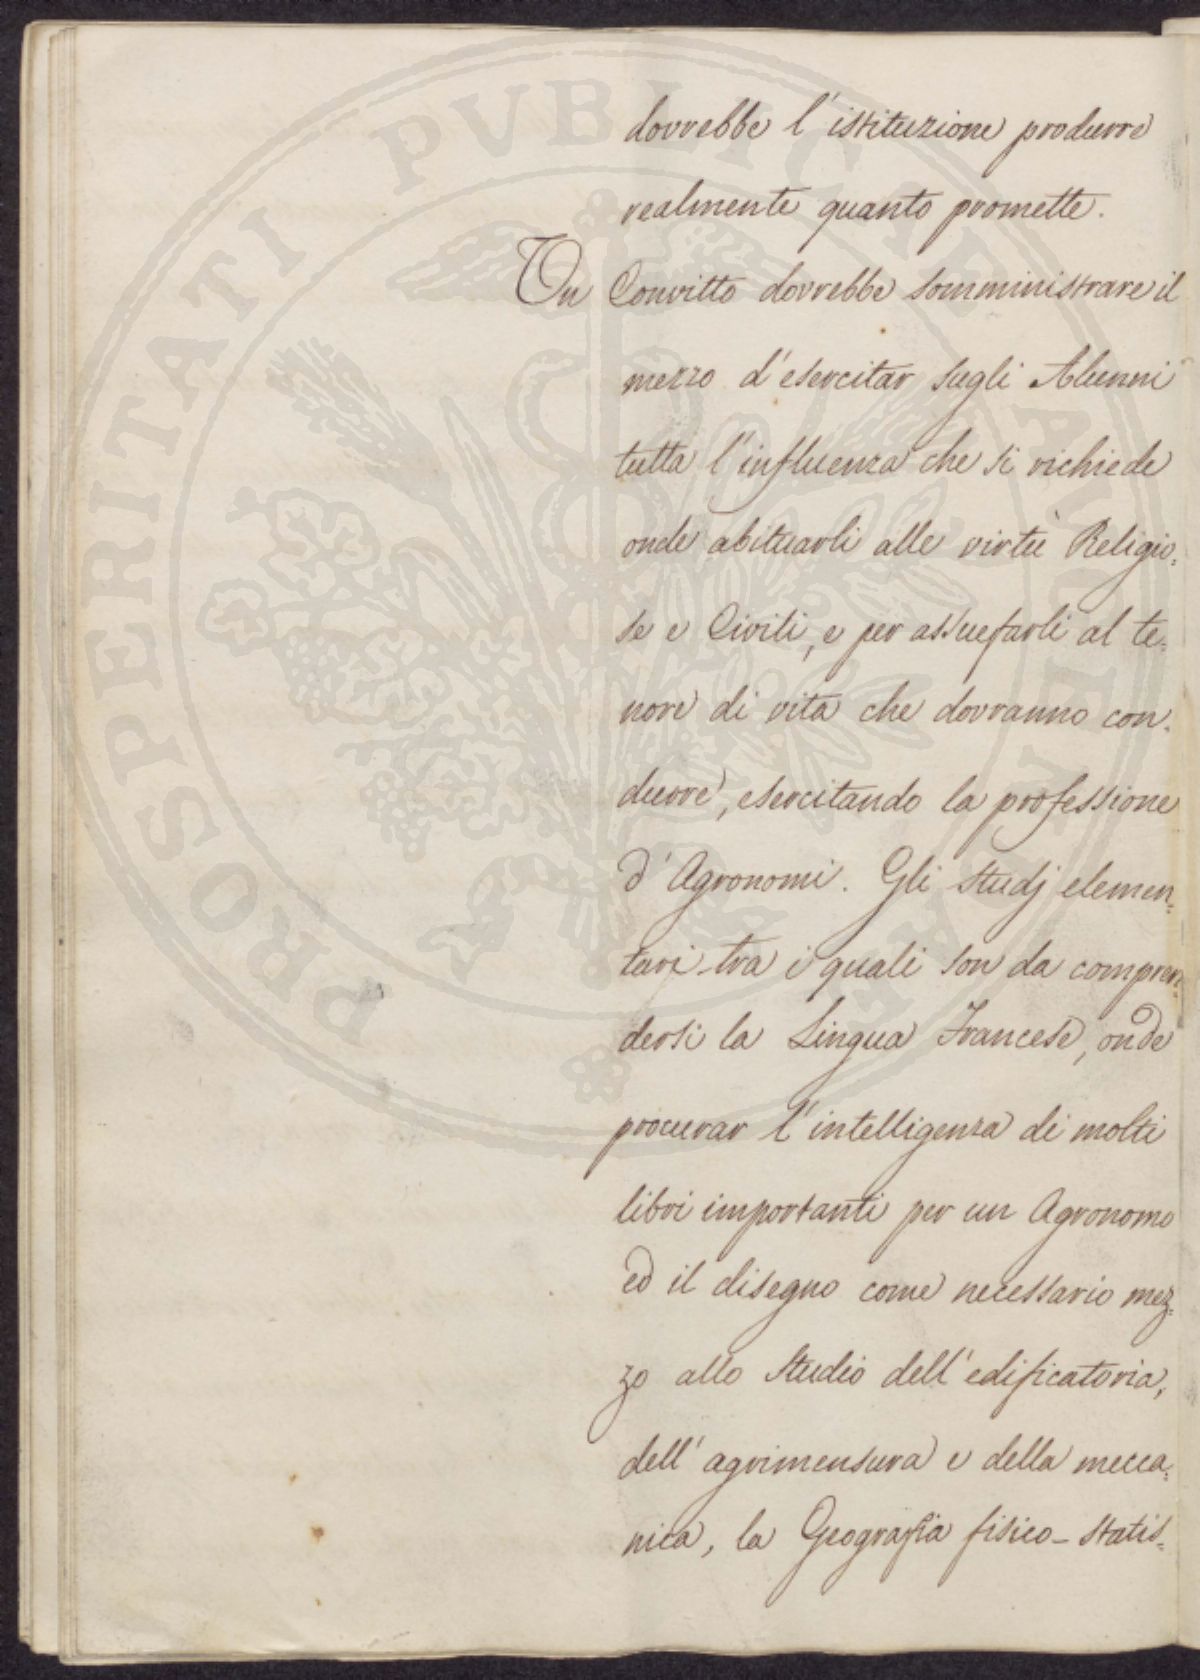 dovrebbe l'istituzione produrre
realmente quanto promette.
Un Convitto dovrebbe somministrare il
mezzo d'esercitar sugli Alunni
tutta l'influenza che si richiede
onde abituarli alle virtù Religio=
se e Civili, e per assuefarli al te=
nore di vita che dovranno con=
durre, esercitando la professione
d'Agronomi. Gli studj elemen=
tari tra i quali son da compren=
dersi la Lingua Francese, onde
procurar l'intelligenza di molti
libri importanti per un Agronomo
ed il disegno come necessario mez=
zo allo studio dell'edificatoria,
dell'agrimensura e della mecca=
nica, la Geografia fisico-statis=
PROSPERITATI PVBLICAE AVGENDAE